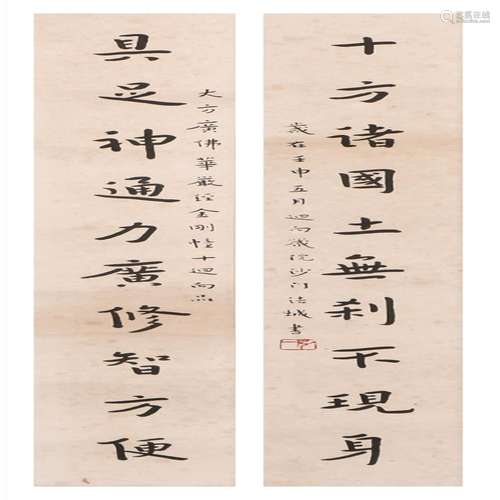 十方诸國土無刹不現身
歲在壬申五月迴向嚴院沙门城書
大方廣佛華嚴經金剛幢十迴向品
具足神通力廣修智方便